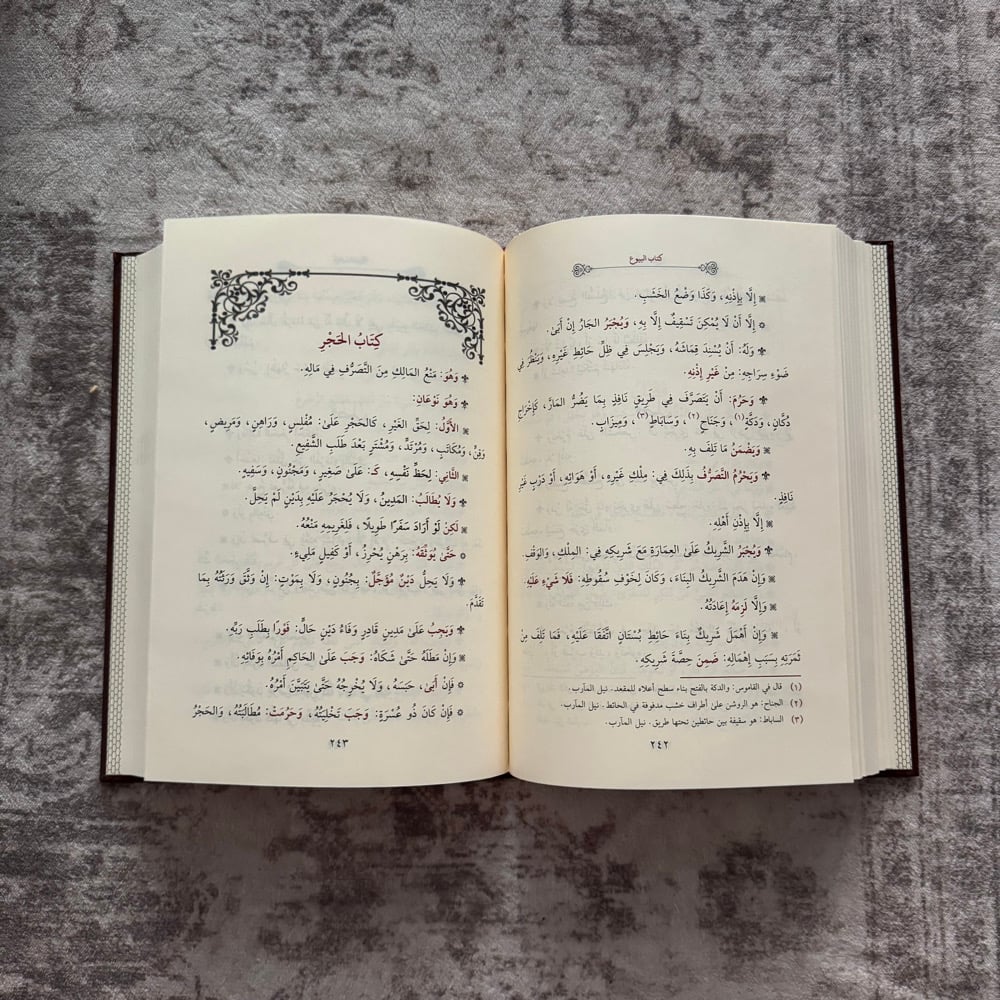 كتاب البيوع
إِلَّا بِإِذْنِهِ، وَكَذَا وَضْعُ الخَشَبِ.
إِلَّا أَنْ لَا يُمْكِنَ تَسْقِيفٌ إِلَّا بِهِ، وَيُجْبَرُ الجَارُ إِنْ أَبَىٰ.
وَلَهُ: أَنْ يُسْنِدَ قِمَاشَهُ، وَيَجْلِسَ فِي ظِلِّ حَائِطِ غَيْرِهِ، وَيَنْظُرَ فِي
ضَوْءِ سِرَاجِهِ: مِنْ غَيْرِ إِذْنِهِ.
وَحَرُمَ: أَنْ يَتَصَرَّفَ فِي طَرِيقٍ نَافِذٍ بِمَا يَضُرُّ المَارَّ، كَإِخْرَاجِ
دُكَّانٍ، وَدَكَّةٍ(١)، وَجَنَاحٍ(٢)، وَسَابَاطٍ(٣)، وَمِيزَابٍ.
وَيَضْمَنُ مَا تَلِفَ بِهِ.
وَيَحْرُمُ التَّصَرُّفُ بِذَلِكَ فِي: مِلْكِ غَيْرِهِ، أَوْ هَوَائِهِ، أَوْ دَرْبٍ غَيْرِ
نَافِذٍ.
إِلَّا بِإِذْنِ أَهْلِهِ.
وَيُجْبَرُ الشَّرِيكُ عَلَىٰ العِمَارَةِ مَعَ شَرِيكِهِ فِي: المِلْكِ، وَالوَقْفِ.
وَإِنْ هَدَمَ الشَّرِيكُ البِنَاءَ، وَكَانَ لِخَوْفِ سُقُوطِهِ: فَلَا شَيْءَ عَلَيْهِ
وَإِلَّا لَزِمَهُ إِعَادَتُهُ.
وَإِنْ أَهْمَلَ شَرِيكٌ بِنَاءَ حَائِطِ بُسْتَانٍ اتَّفَقَا عَلَيْهِ، فَمَا تَلِفَ مِنْ
ثَمَرَتِهِ بِسَبَبِ إِهْمَالِهِ: ضَمِنَ حِصَّةَ شَرِيكِهِ.
(١) قال في القاموس: والدكة بالفتح بناء سطح أعلاه للمقعد. نيل المآرب.
(٢) الجناح: هو الروشن على أطراف خشب مدفونة في الحائط. نيل المآرب.
(٣) الساباط: هو سقيفة بين حائطين تحتها طريق. نيل المآرب.
٢٤٢
كِتَابُ الحَجْرِ
وَهُوَ: مَنْعُ المَالِكِ مِنَ التَّصَرُّفِ فِي مَالِهِ.
وَهُوَ نَوْعَانِ:
الأَوَّلُ: لِحَقِّ الغَيْرِ، كَالحَجْرِ عَلَىٰ: مُفْلِسٍ، وَرَاهِنٍ، وَمَرِيضٍ،
وَقِنٍّ، وَمُكَاتَبٍ، وَمُرْتَدٍّ، وَمُشْتَرٍ بَعْدَ طَلَبِ الشَّفِيعِ.
الثَّانِي: لِحَظِّ نَفْسِهِ، كَـ: عَلَىٰ صَغِيرٍ، وَمَجْنُونٍ، وَسَفِيهٍ.
وَلَا يُطَالَبُ: المَدِينُ، وَلَا يُحْجَرُ عَلَيْهِ بِدَيْنٍ لَمْ يَحِلَّ.
لَكِنْ لَوْ أَرَادَ سَفَرًا طَوِيلًا، فَلِغَرِيمِهِ مَنْعُهُ.
حَتَّىٰ يُوَثِّقَهُ: بِرَهْنٍ يُحْرِزُ، أَوْ كَفِيلٍ مَلِيءٍ.
وَلَا يَحِلُّ دَيْنٌ مُؤَجَّلٌ: بِجُنُونٍ، وَلَا بِمَوْتٍ: إِنْ وَثَّقَ وَرَثَتُهُ بِمَا
تَقَدَّمَ.
وَيَجِبُ عَلَىٰ مَدِينٍ قَادِرٍ وَفَاءُ دَيْنٍ حَالٍّ: فَوْرًا بِطَلَبِ رَبِّهِ.
وَإِنْ مَطَلَهُ حَتَّىٰ شَكَاهُ: وَجَبَ عَلَىٰ الحَاكِمِ أَمْرُهُ بِوَفَائِهِ.
فَإِنْ أَبَىٰ، حَبَسَهُ، وَلَا يُخْرِجُهُ حَتَّىٰ يَتَبَيَّنَ أَمْرُهُ.
فَإِنْ كَانَ ذُو عُسْرَةٍ: وَجَبَ تَخْلِيَتُهُ، وَحَرُمَتْ: مُطَالَبَتُهُ، وَالحَجْرُ
٢٤٣